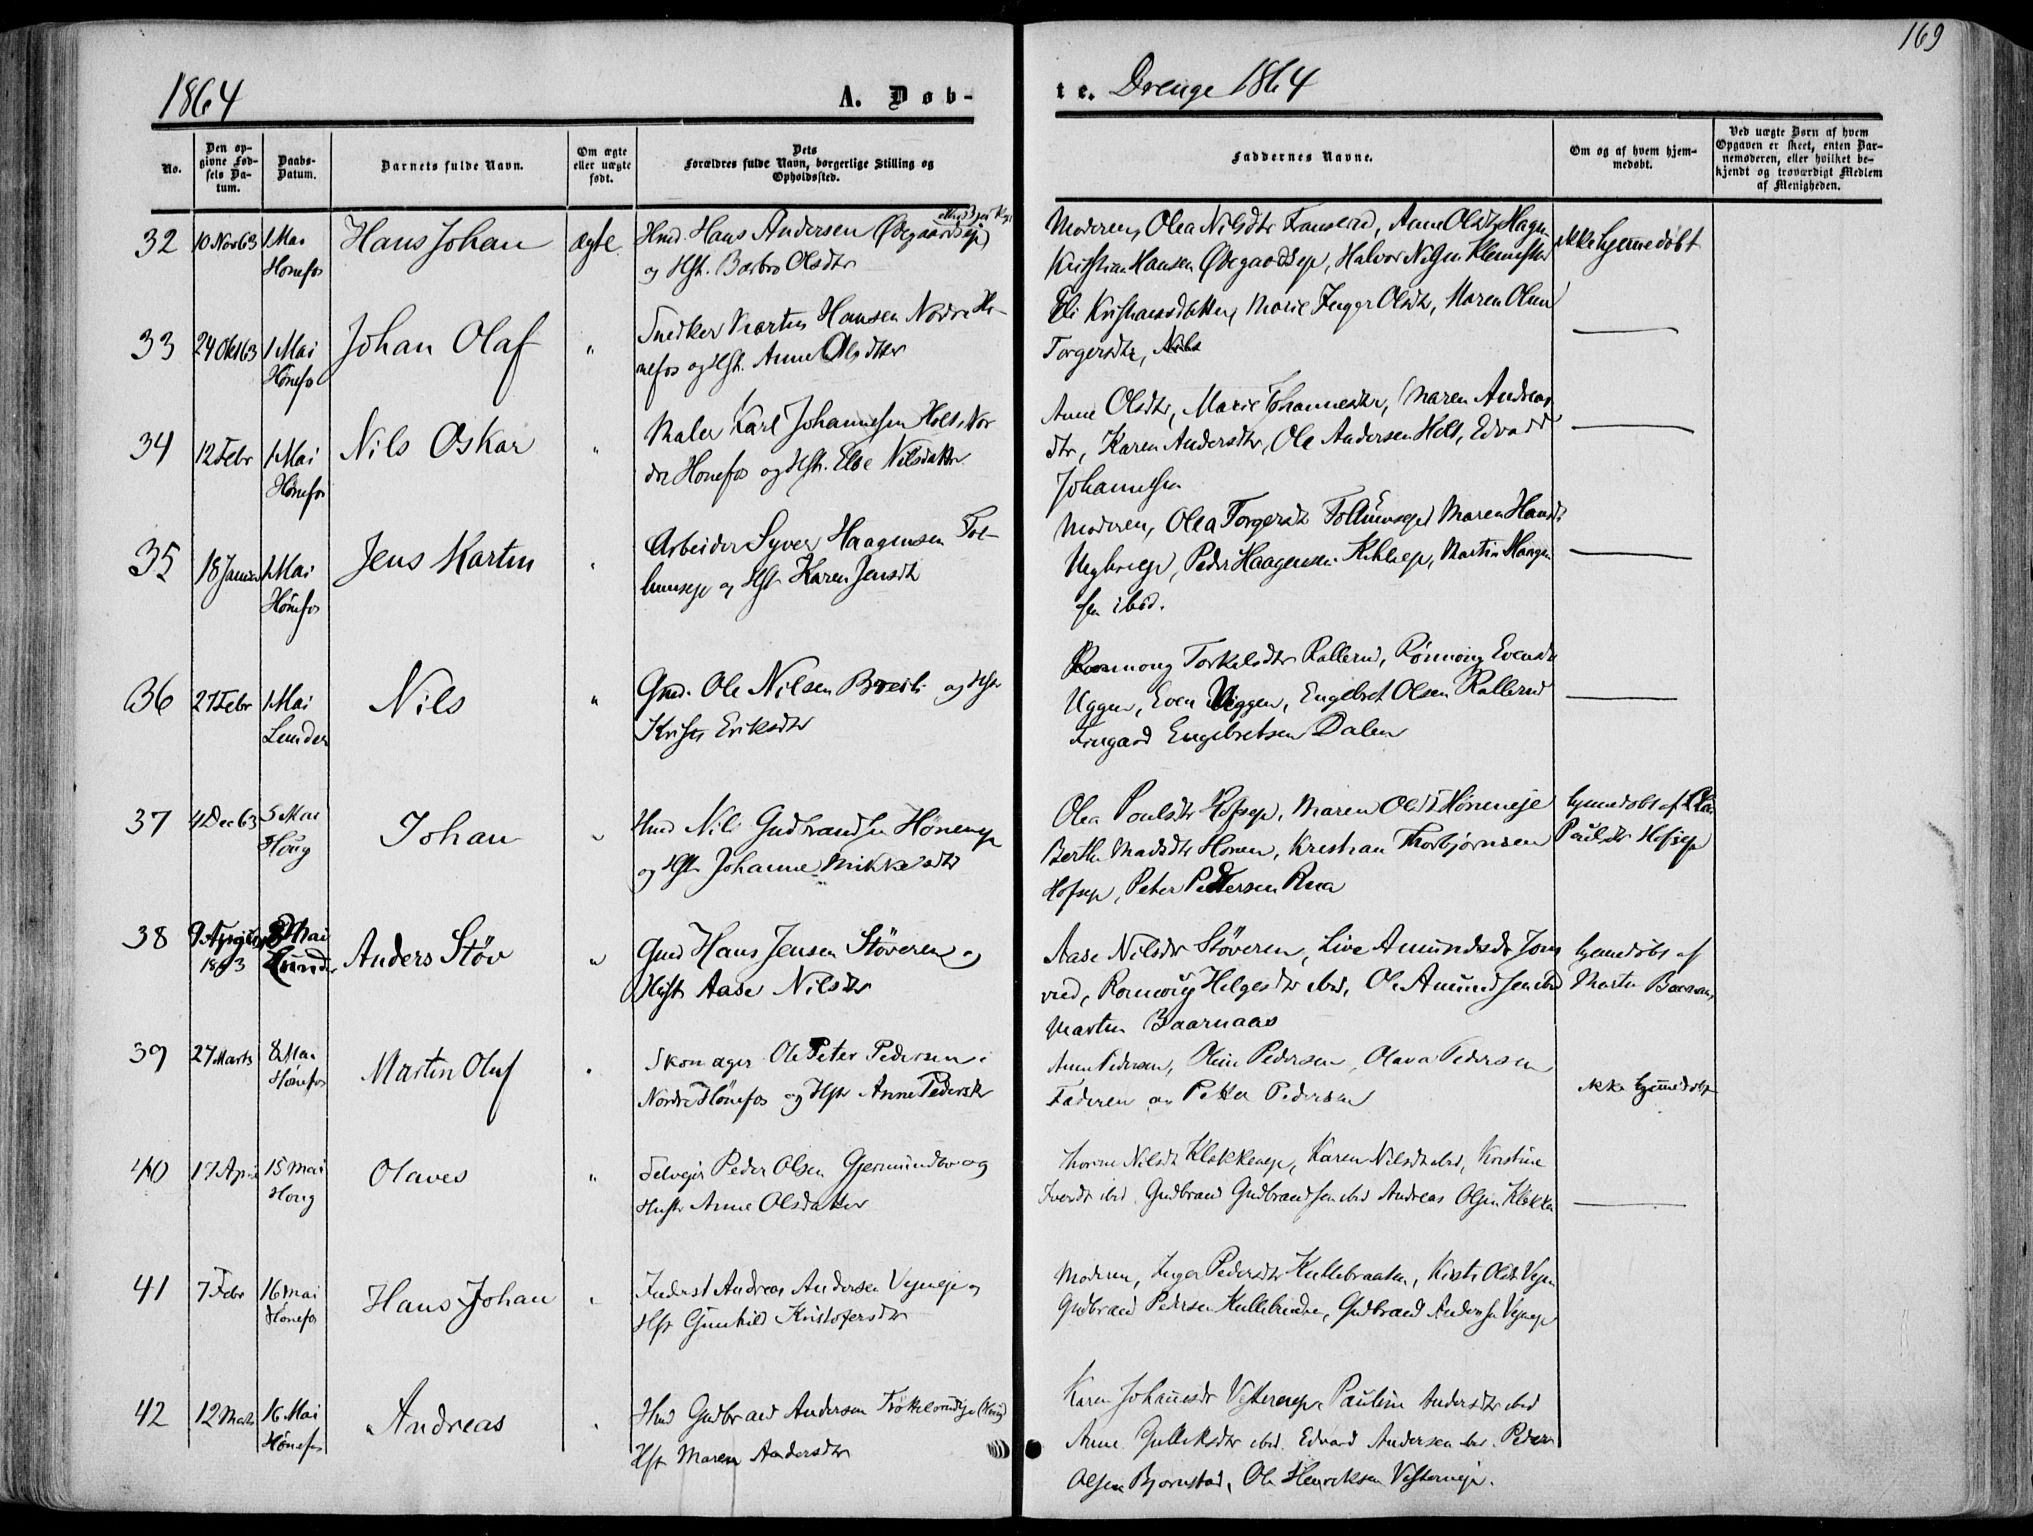 169
1864
A. Døb-
te. Drenge 1864
No.
Den op-
givne Fød-
sels Da-
tum.
Daabs-
Datum.
Barnets fulde Navn.
Om ægte
eller uægte
født.
Dets
Forældres fulde Navn, borgerlige Stilling og
Opholdssted.
Faddernes Navne.
Om og af hvem hjem-
medøbt.
Ved uægte Børn af hvem
Opgaven er skeet, enten Bar-
nemoderen, eller hvilket be-
kjendt og troværdigt Medlem
af Menigheden.
32 10 Nov 63 1 Mai Hans Johan ægte Hmd. Hans Andersen Øbegaardseje
Hønefos og Hst. Barbro Olsdtr
Moderen, Olea Nilsdtr Anne Olsdtr Hagen
Kristian Hansen Øbegaardsep, Halvor Nilsen
ikke hjemmedøbt
33 24 Okt 63 1 Mai Johan Olaf " Snedker Martin Hansen Nordre Hø-
Hønefos nefos og Hst. Anne Olsdtter
Eli Kristiansdatter, Marie Inger Olsdtr, Maren Oline
Torgersdtr, Nils
34 12 Febr 1 Mai Nils Oskar " Maler Karl Johannesen Holst, Nor
Hønefos dre Hønefos og Hst. Else Nilsdatter
Anne Olsdtr, Marie Johannesdtr, Maren Andreas
dtr, Karen Andersdtr, Ole Andersen Holt, Edvard
Johannesen
35 18 Januar 1 Mai Jens Martin " Arbeider Syver Haagensen Fol-
Hønefos lumseje og Hst Karen Jensdtr
Moderen, Olea Torgersdtr Follumseje Maren Hansdtr
Peder Haagensen Kihlsep, Martin Haagen
sen ibid.
36 27 Febr 1 Mai Nils " Gmd. Ole Nilsen Breili og Hst
Lunder Kristi Eriksdtr
Rønnoug Torkelsdtr Rallerud, Rønnoug Evensdtr
Uggen, Even Uggen, Engebret Olsen Rallerud
Frugard Engebretsen Dalen
37 4 Dec 63 5 Mai Johan " Hmd Nils Gudbrandsen Høneneje
Houg og Hst Johanne Mikkelsdtr
Olea Poulsdtr Hofsep, Maren Olsdtr Høneneje
Berthe Madsdtr Honen, Kristian Thorbjørnsen
Hofsep, Peter Pettersen Rua
hjemmedøbt af Olea
Paulsdtr Hofsep
38 9 April 8 Mai Anders Støv " Gmd Hans Jensen Støveren og
1863 Lunder Hust Aase Nilsdtr
Aase Nilsdtr Støveren, Live Amundsdtr Jons
rud, Ronnoug Helgesdtr ibid, Ole Amundsen ibid
Martin Baarnaas
hjemmedøbt af
Martin Baarnaas
39 27 Marts 8 Mai Martin Oluf " Skomager Ole Peter Pedersen i
Hønefos Nordre Hønefos og Hst Anne Pedersdtr
Anne Pedersen, Oline Pedersen, Olava Pedersen
Faderen og Petter Pedersen
ikke hjemmedøbt
40 17 April 15 Mai Olaves " Selveier Peder Olsen Gjermundbo og
Houg Hustr Anne Olsdatter
Thorine Nilsdtr Klækkenep, Karen Nilsdtr ibid, Kristine
Iversdtr ibid. Gudbrand Gudbrandsen ibid Andreas Olsen Klækken
41 7 Febr 16 Mai Hans Johan " Inderst Andreas Andersen Vejneje og
Hønefos Hst Gunhild Kristofersdtr
Moderen, Inger Pedersdtr Kullebraaten, Kirsti Olsdtr Vejen
Gudbrand Pedersen Gudbrand Andersen Vejneje
42 12 Marts 16 Mai Andreas " Hmd Gudbrand Andersen
Hønefos Hst Maren Andersdtr
Karen Johannesdtr Vesterneje Pauline Andersdtr ibid
Anne Gulliksdtr ibid. Edvard Andersen ibid. Peder
Olsen Bjørnstad, Ole Henriksen Vesterneje.